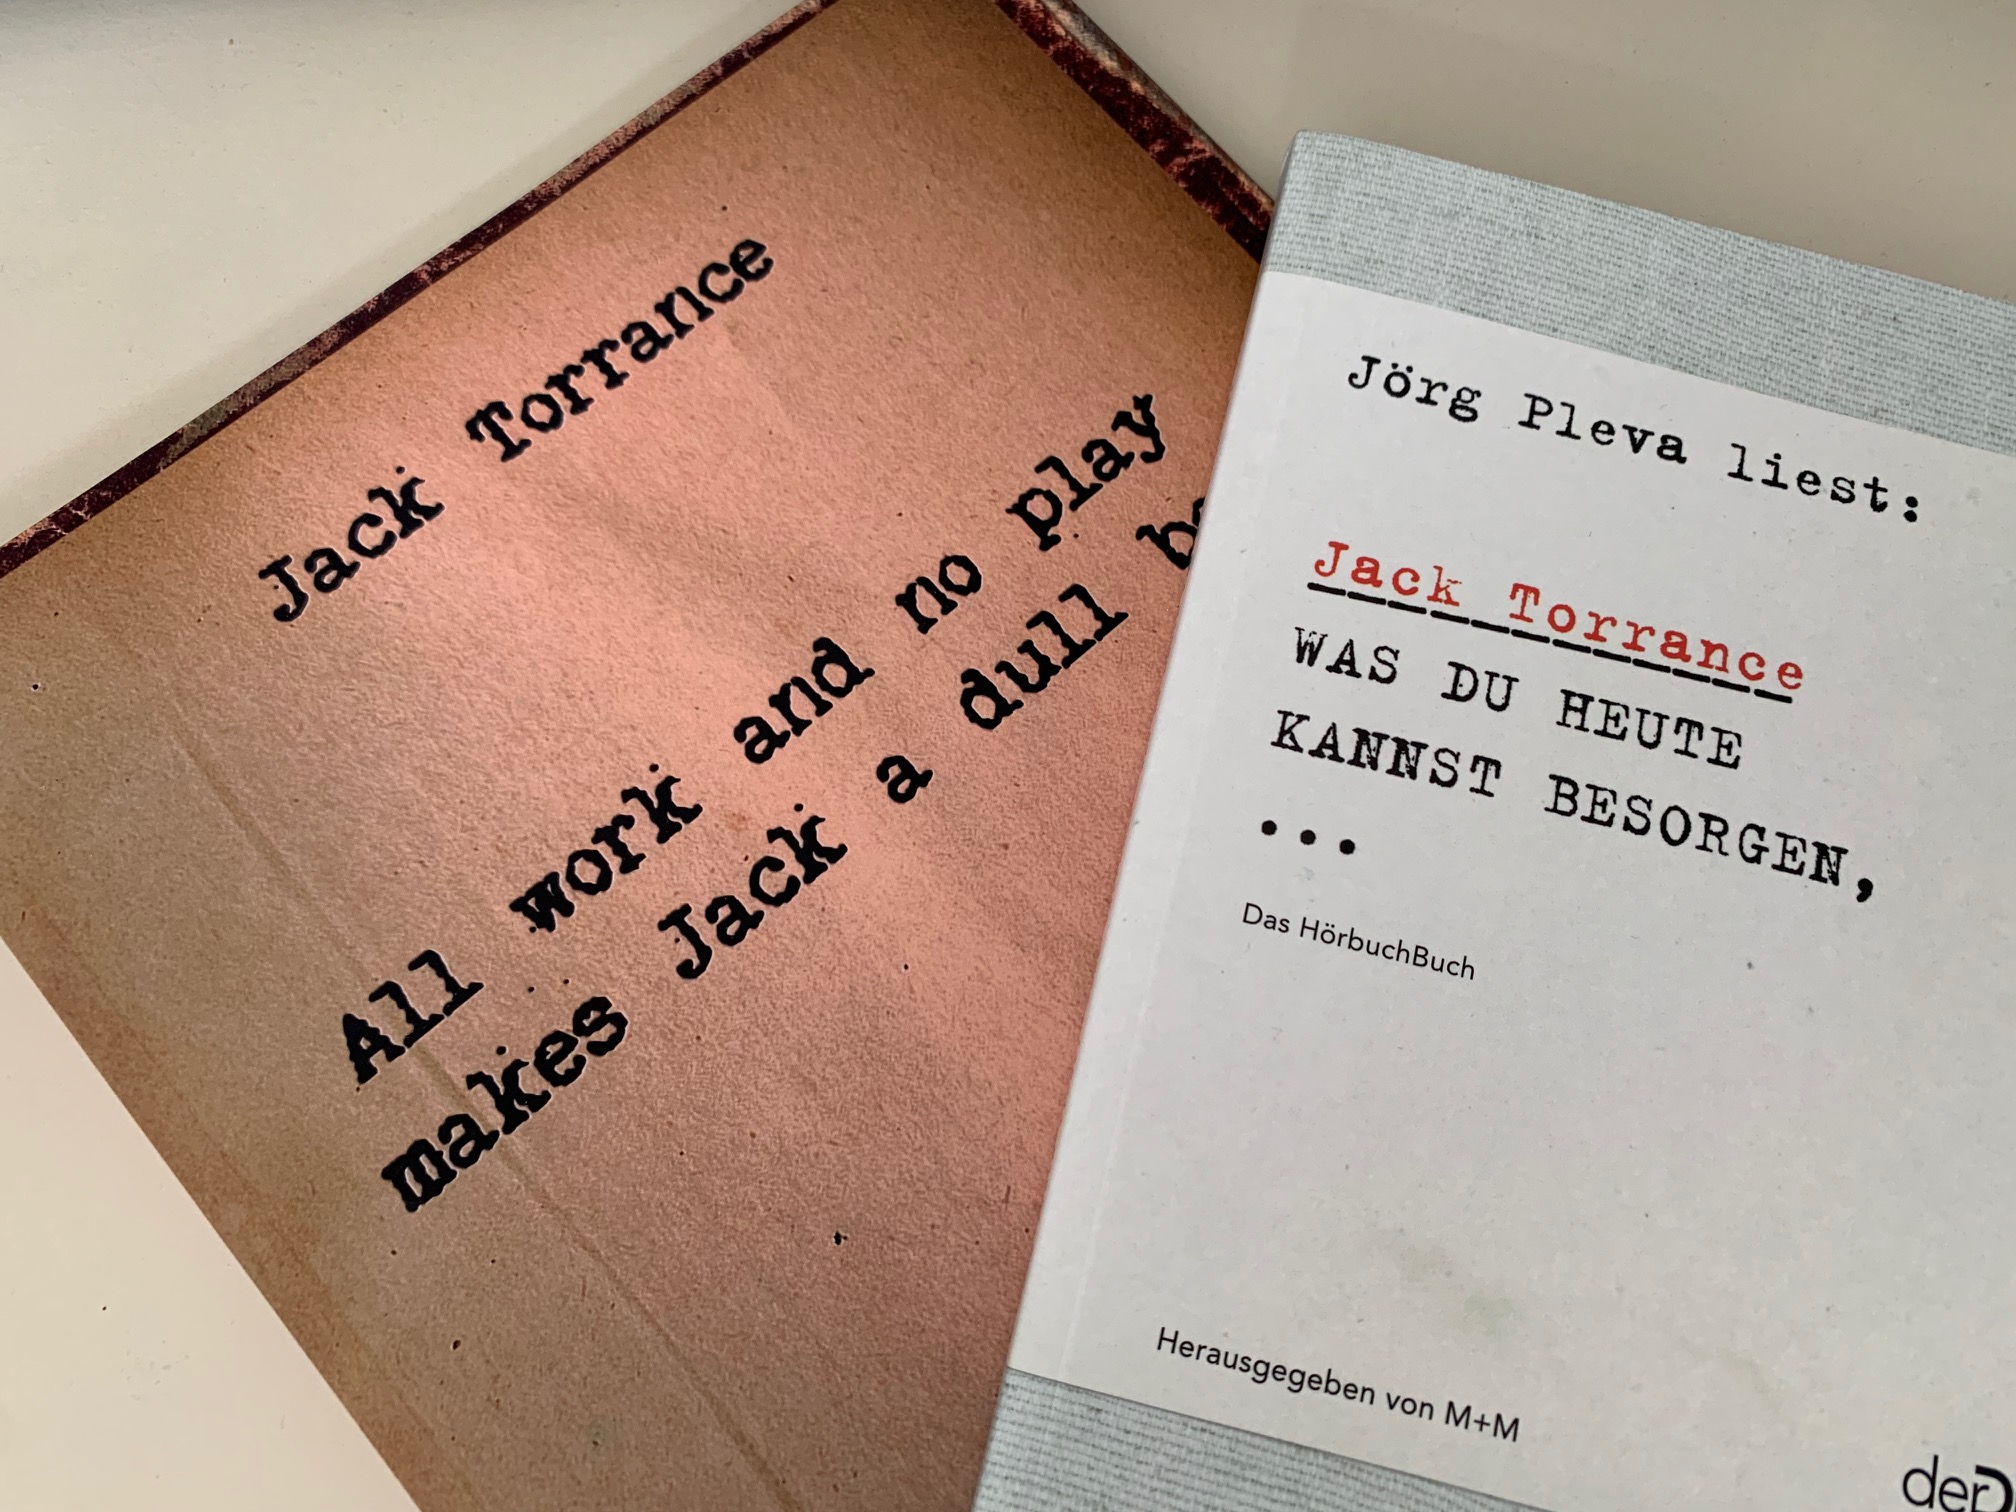 Jack Torrance
All work and no play
makes Jack a dull
Jörg Pleva liest:
Jack Torrance
WAS DU HEUTE
KANNST BESORGEN,
...
Das HörbuchBuch
Herausgegeben von M+M
der